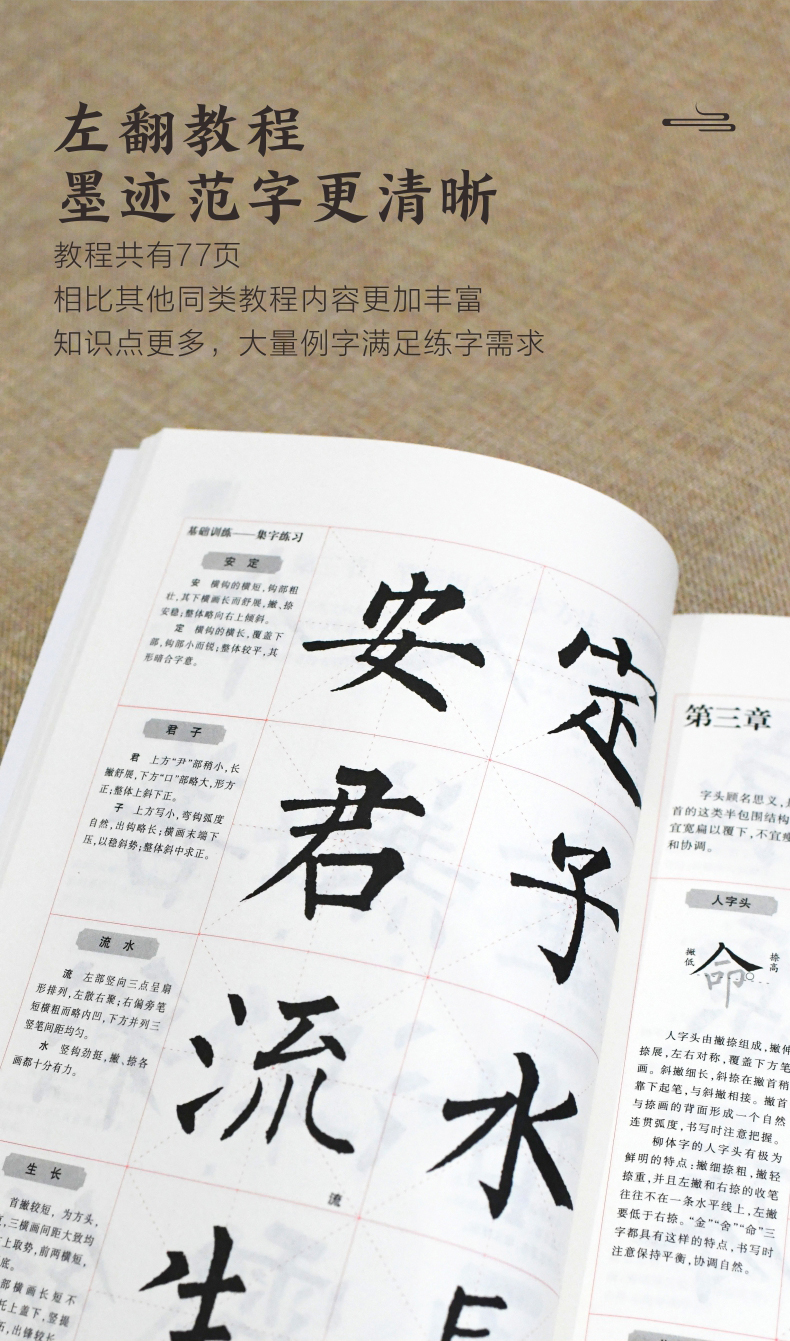 左翻教程
墨迹范字更清晰
教程共有77页
相比其他同类教程内容更加丰富
知识点更多，大量例字满足练字需求
基础训练——集字练习
安 定
安 横钩的横短，钩部粗
壮，其下横画长而舒展，撇、捺
安稳；整体略向右上倾斜。
定 横钩的横长，覆盖下
部，钩部小而锐；整体较平，其
形暗合字意。
安 定
君 子
君 上方“尹”部稍小，长
撇舒展，下方“口”部略大，形方
正；整体上斜下正。
子 上方写小，弯钩弧度
自然，出钩略长；横画末端下
压，以稳斜势；整体斜中求正。
君 子
流 水
流 左部竖向三点呈扇
形排列，左散右聚；右偏旁笔
短横粗而略内凹，下方并列三
竖笔间距均匀。
水 竖钩劲挺，撇、捺各
画都十分有力。
流 水
流
生 长
首撇较短，为方头，
三横画间距大致均
上取势，前两横短，
底。
部横画长短不
托上盖下，竖提
出锋较长
生
第三章
字头顾名思义，
首的这类半包围结构
宜宽扁以覆下，不宜
和协调。
人字头
撇低
捺高
命
人字头由撇捺组成，撇伸
捺展，左右对称，覆盖下方笔
画。斜撇细长，斜捺在撇首稍
靠下起笔，与斜撇相接。撇首
与捺画的背面形成一个自然
连贯弧度，书写时注意把握。
柳体字的人字头有极为
鲜明的特点：撇细捺粗，撇轻
捺重，并且左撇和右捺的收笔
往往不在一条水平线上，左撇
要低于右捺。“金”“舍”“命”三
字都具有这样的特点，书写时
注意保持平衡，协调自然。